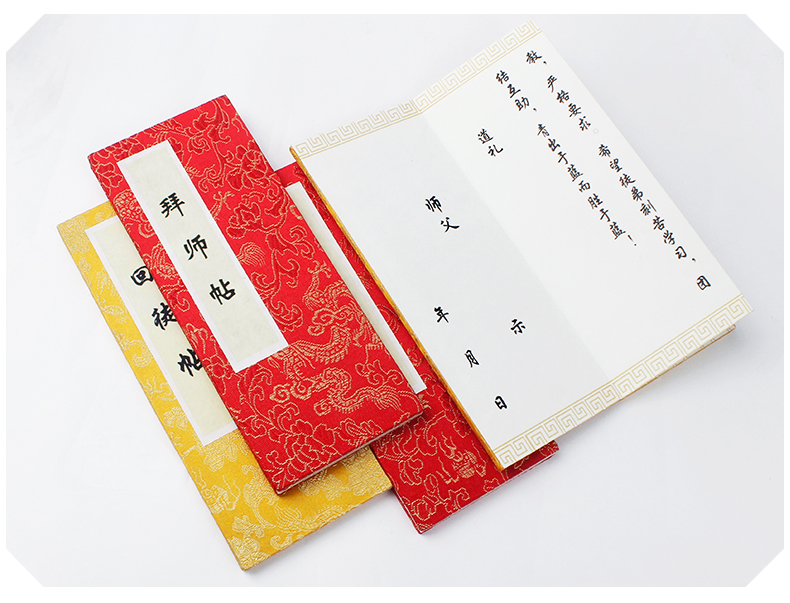 拜师帖
回徒帖
教，严格要求。希望徒弟刻苦学习，团
结互助，青出于蓝而胜于蓝！
道礼
师父
示
年月日